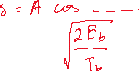 s = A cos ----
√(2 E_b / T_b)